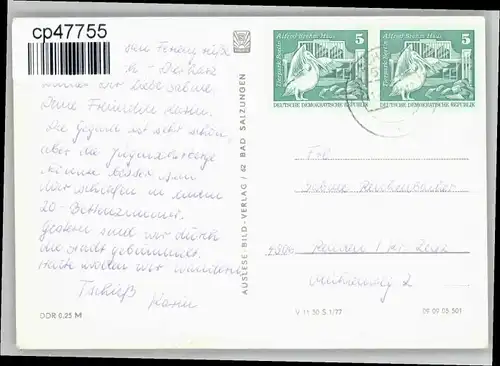 cp47755
sen Ferien
wir Liebe Sabine
Deine Freundin Karin.
Die Gegend ist sehr schön,
aber die Jugendherberge
könnte besser sein
wir schlafen in einem
20-Bettenzimmer.
Gestern sind wir durch
die Stadt gebummelt.
Heute wollen wir wandern
Tschüß Karin
DDR 0,25 M
AUSLESE BILD-VERLAG / 62 BAD SALZUNGEN
Alfred-Brehm-Haus 5
Tierpark Berlin
DEUTSCHE DEMOKRATISCHE REPUBLIK
Alfred-Brehm-Haus 5
Tierpark Berlin
DEUTSCHE DEMOKRATISCHE REPUBLIK
Frl.
Sabine
/ Kr. Zeitz
2
V 11 50 S 1/77
09 09 05 501